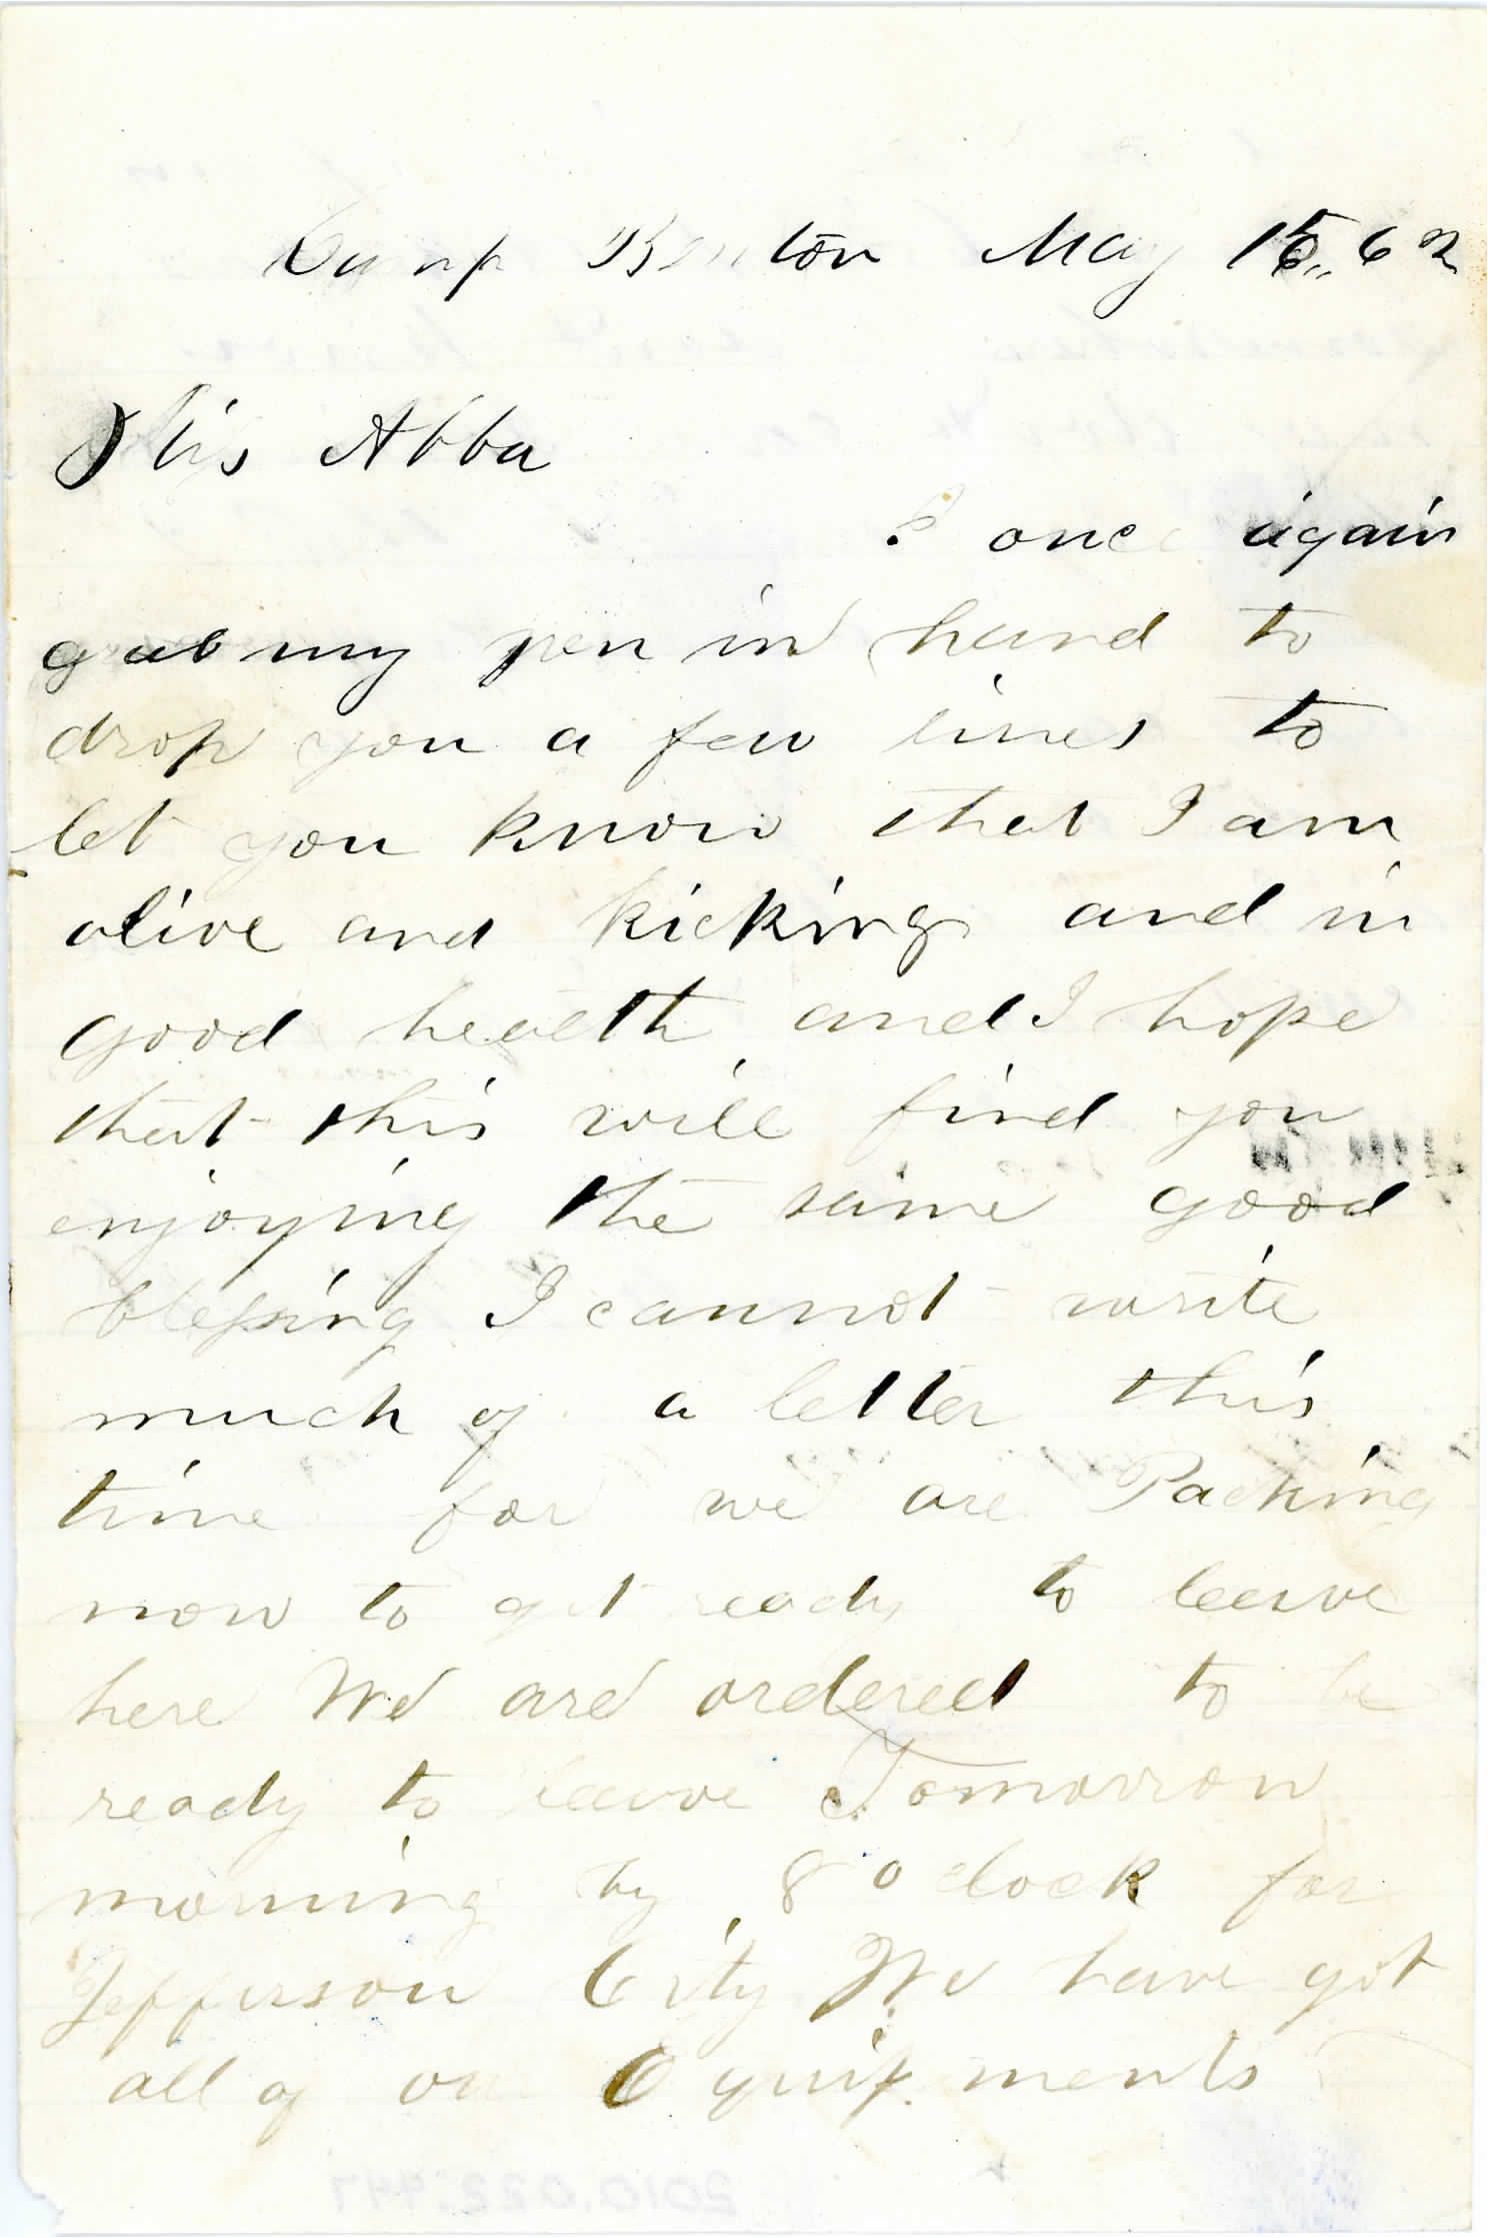 Camp Benton May 15,, 62
Abba
I once again
my pen in hand to
drop you a few lines to
let you know that I am
alive and kicking and in
good health and I hope
that this will find you
enjoying the same good
blessing I cannot write
much of a letter this
time for we are Packing
now to get ready to leave
here We are ordered to be
ready to leave Tomorrow
morning by 8 o clock for
Jefferson City We have got
all of our Equipments
2010.022.447